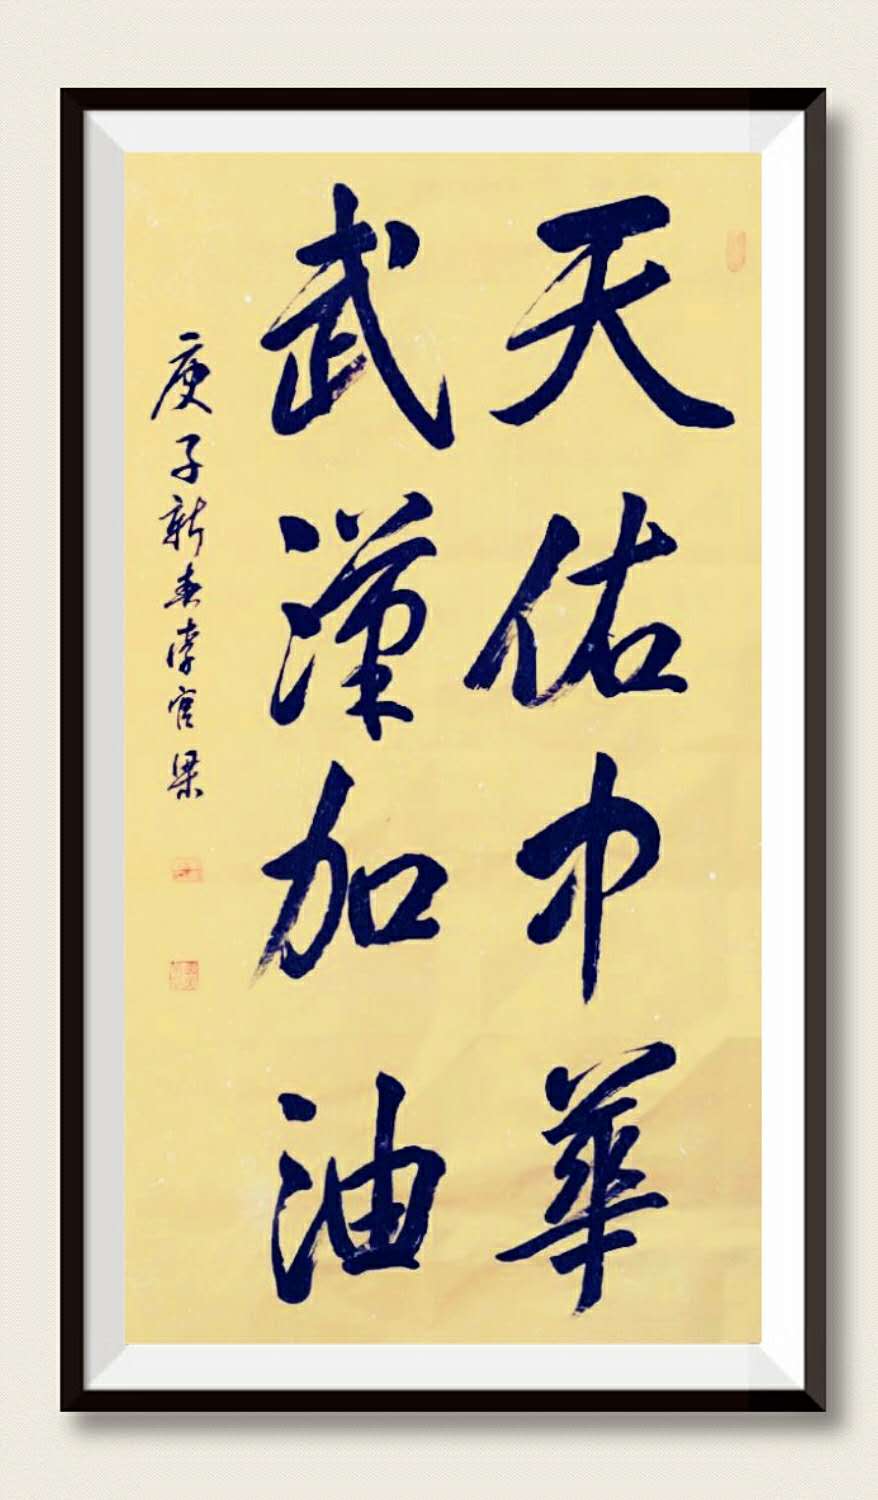 天佑中華
武漢加油
庚子新春李官梁